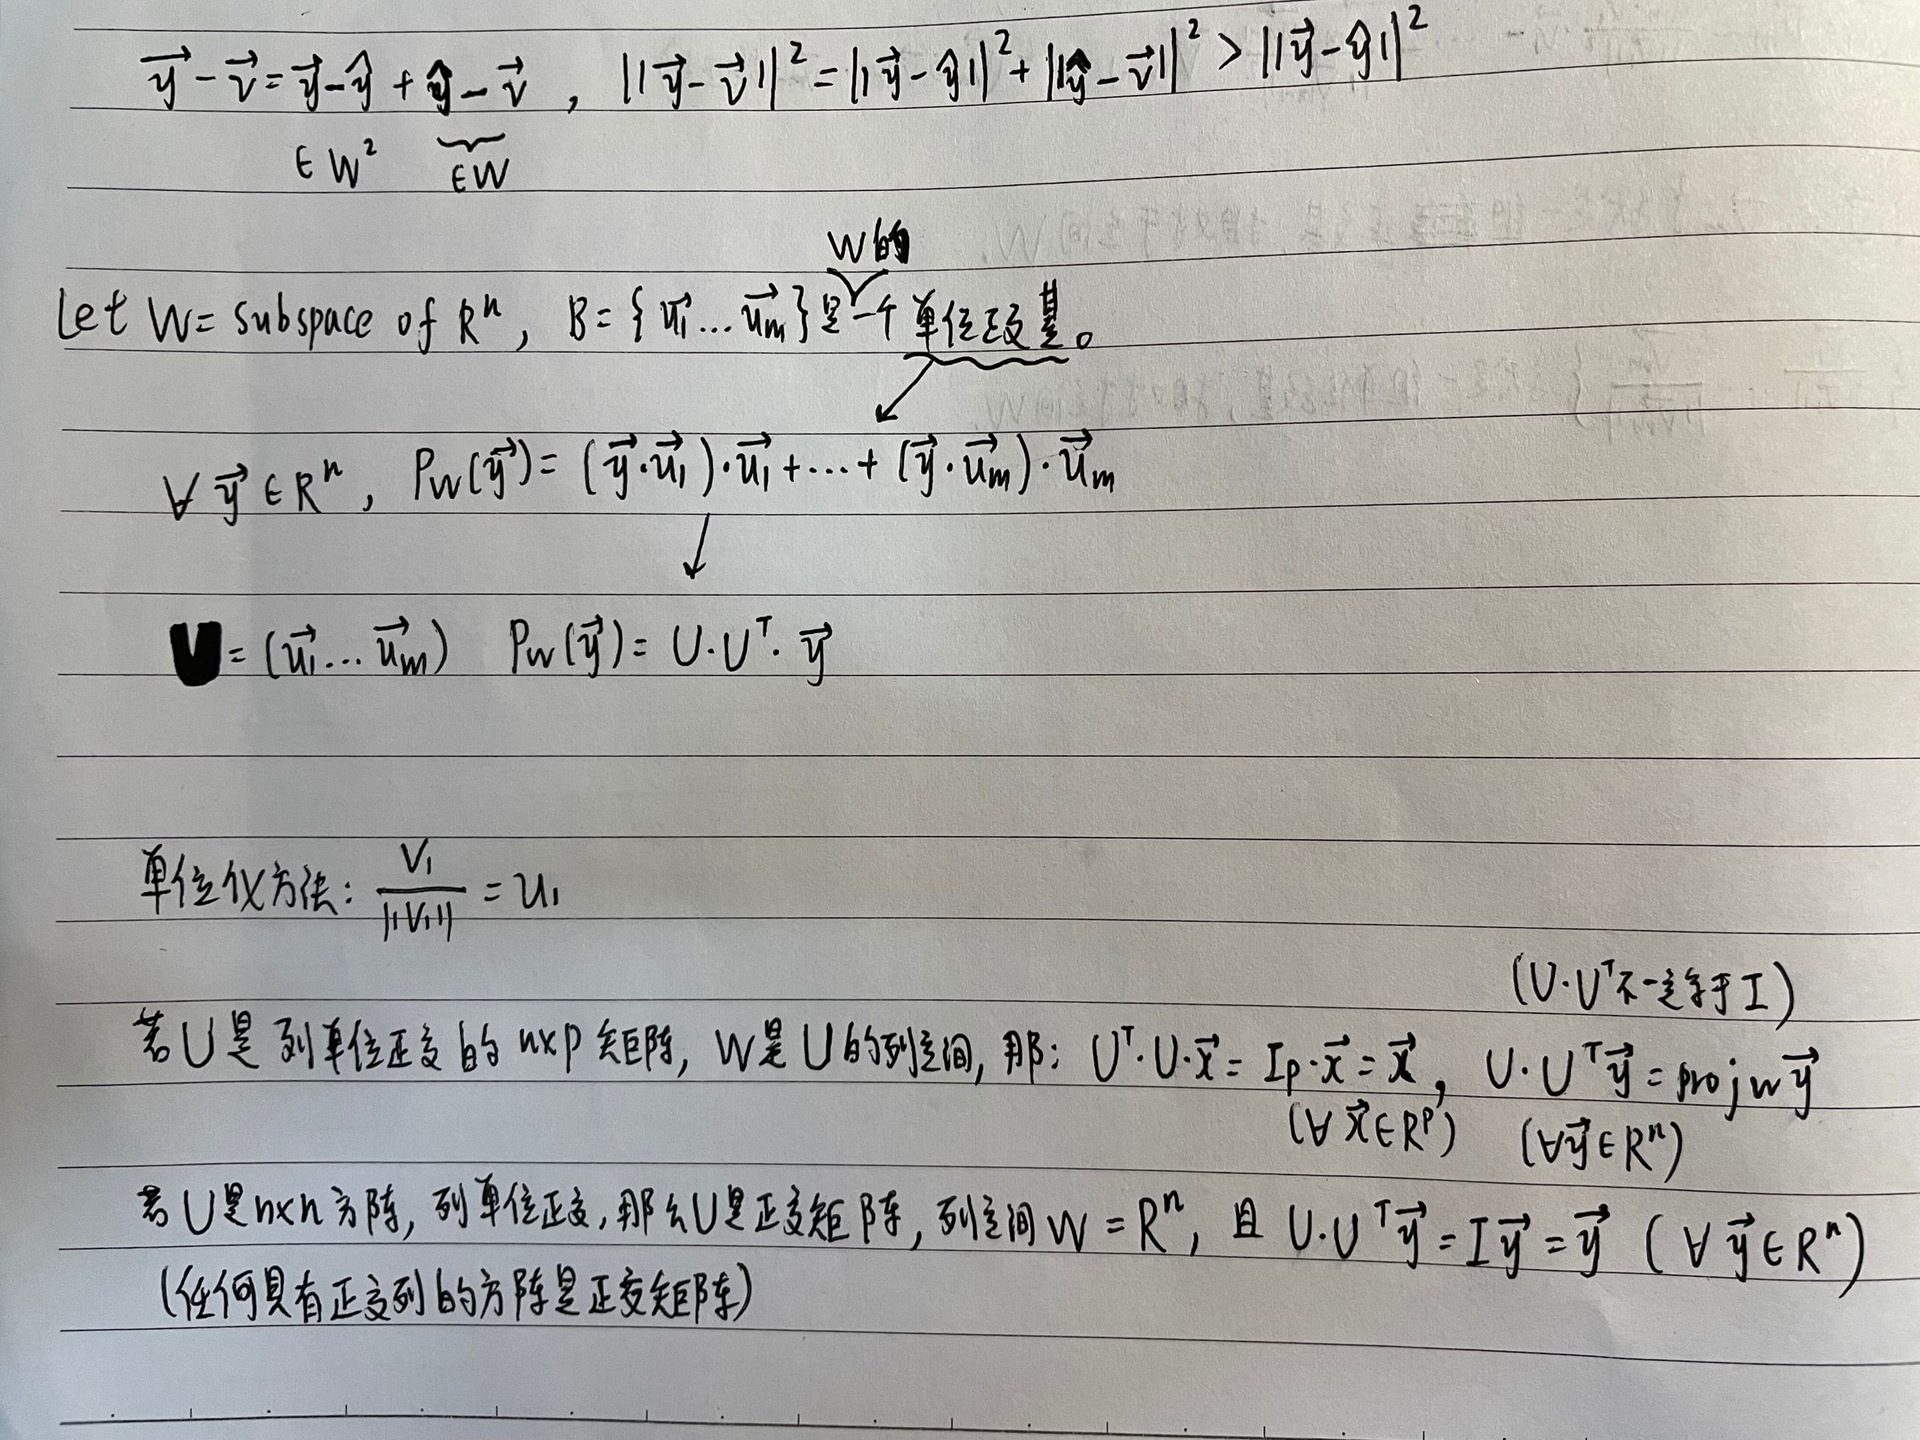 y⃗ - v⃗ = y⃗ - ŷ + ŷ - v⃗ , ||y⃗ - v⃗||² = ||y⃗ - ŷ||² + ||ŷ - v⃗||² > ||y⃗ - ŷ||²
∈ W² ∈ W
W的
Let W = subspace of Rⁿ, B = {u₁⃗ ... uₘ⃗} 是一个单位正交基。
∀ y⃗ ∈ Rⁿ, P_W(y⃗) = (y⃗·u₁⃗)·u₁⃗ + ... + (y⃗·uₘ⃗)·uₘ⃗
U = (u₁⃗ ... uₘ⃗) P_W(y⃗) = U·Uᵀ·y⃗
单位化方法: V₁/||V₁|| = u₁
(U·Uᵀ不一定等于I)
若U是列单位正交的n×p矩阵, W是U的列空间, 那: Uᵀ·U·x⃗ = Iₚ·x⃗ = x⃗, U·Uᵀy⃗ = proj_W y⃗
(∀ x⃗ ∈ Rᵖ) (∀ y⃗ ∈ Rⁿ)
若U是n×n方阵, 列单位正交, 那么U是正交矩阵, 列空间W = Rⁿ, 且 U·Uᵀy⃗ = Iy⃗ = y⃗ (∀ y⃗ ∈ Rⁿ)
(任何具有正交列的方阵是正交矩阵)